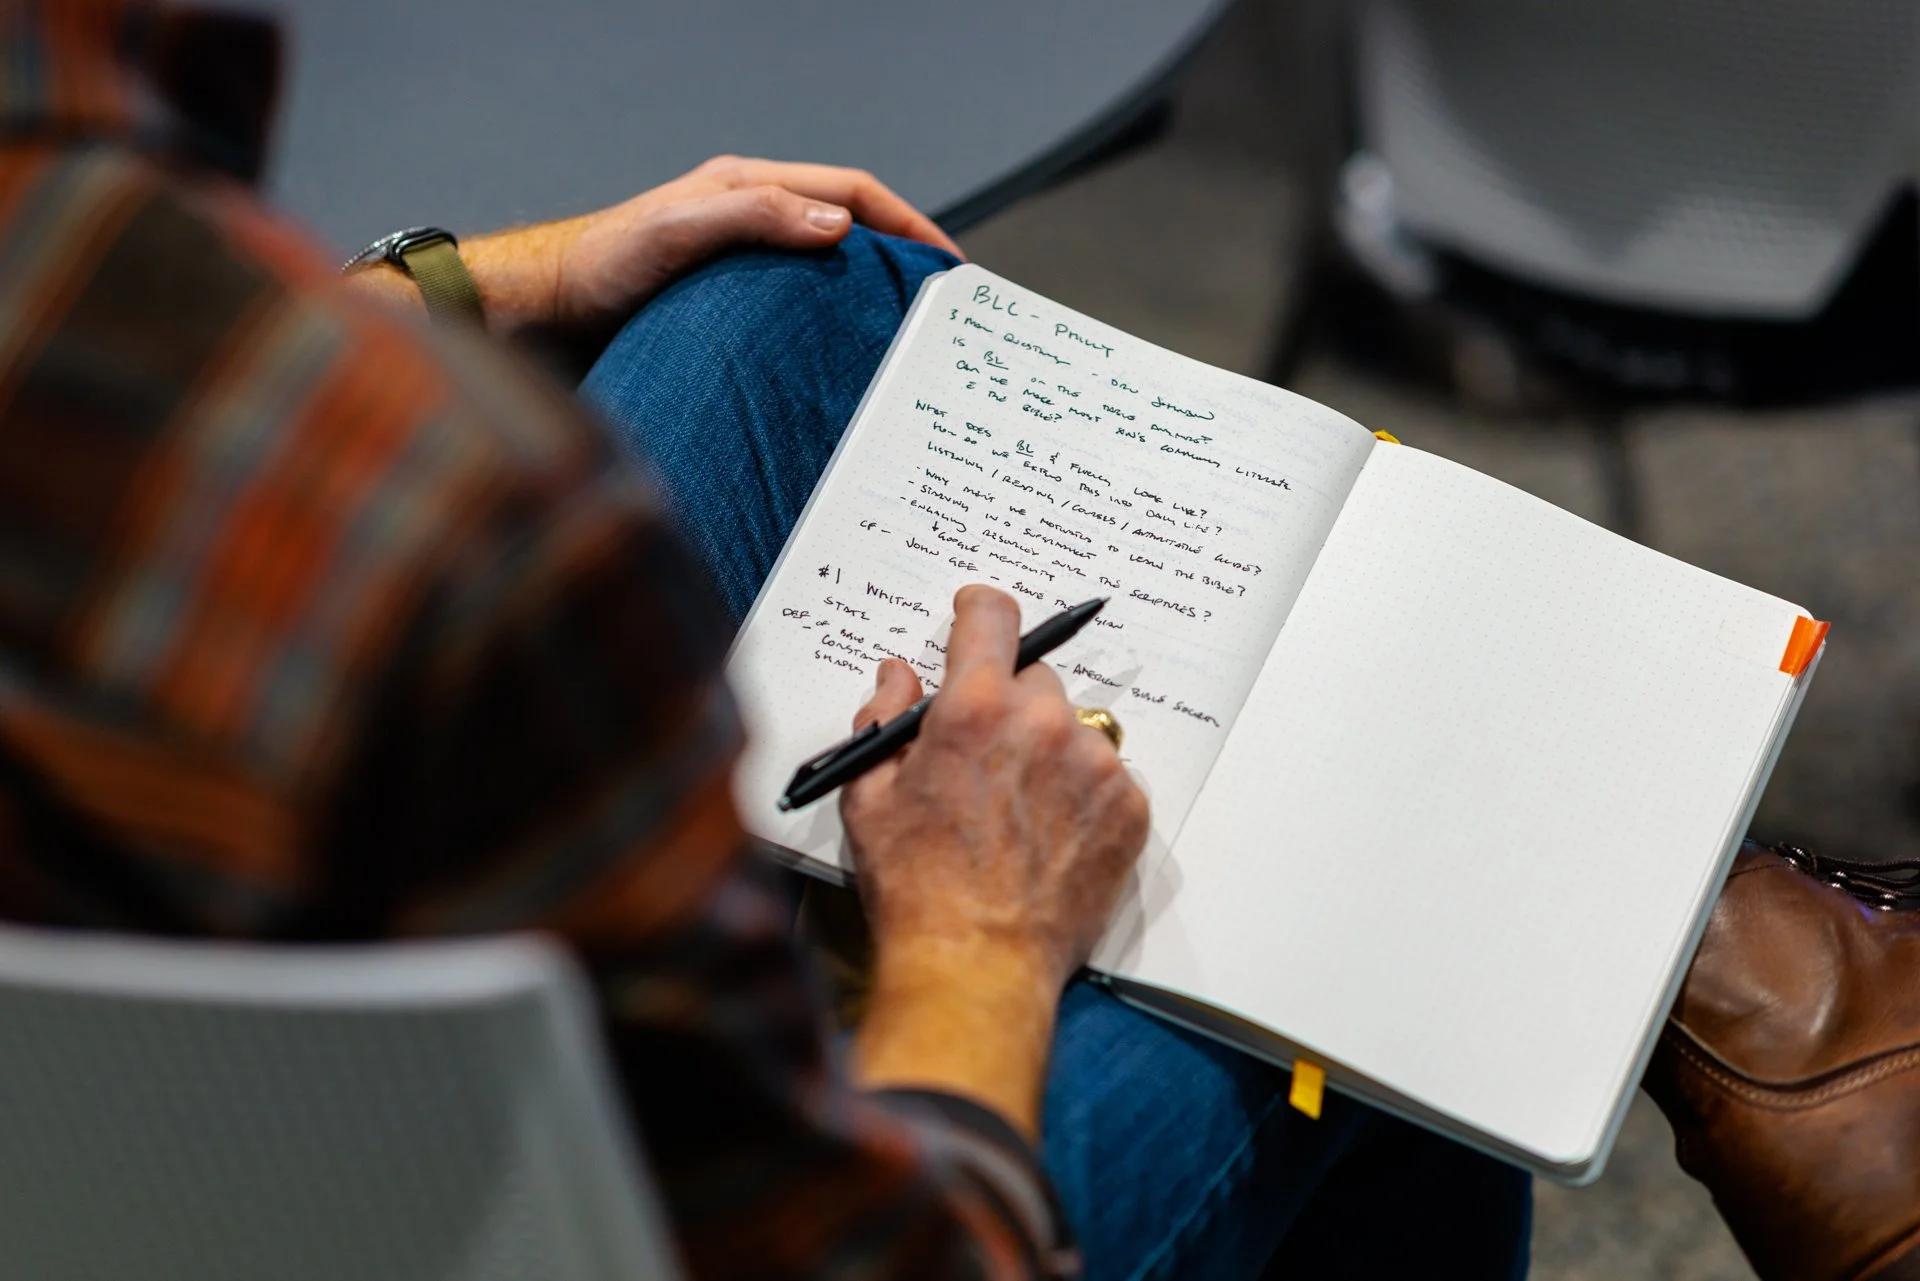 BLC - PHILLY
3 MAIN QUESTIONS - DRU JOHNSON
IS BL ON THE TABLE ANYMORE?
CAN WE MAKE MOST COMMONLY LITERATE
THE BIBLE?
WHAT DOES BL & FLUENCY LOOK LIKE?
HOW DO WE EXTEND THIS INTO DAILY LIFE?
LISTENING / READING / COURSES / AUTHORITATIVE GUIDES?
- WHY AREN'T WE MOTIVATED TO LEARN THE BIBLE?
- STARVING IN A SUPERMARKET
- ENGAGING RESOURCES OVER THE SCRIPTURES?
↓ GOOGLE MENTALITY
CF - JOHN GEE -
#1 WHITNEY - AMERICAN BIBLE SOCIETY
STATE OF THE
DEF OF BIBLE ENGAGEMENT
- CONSISTENT
SHAPES